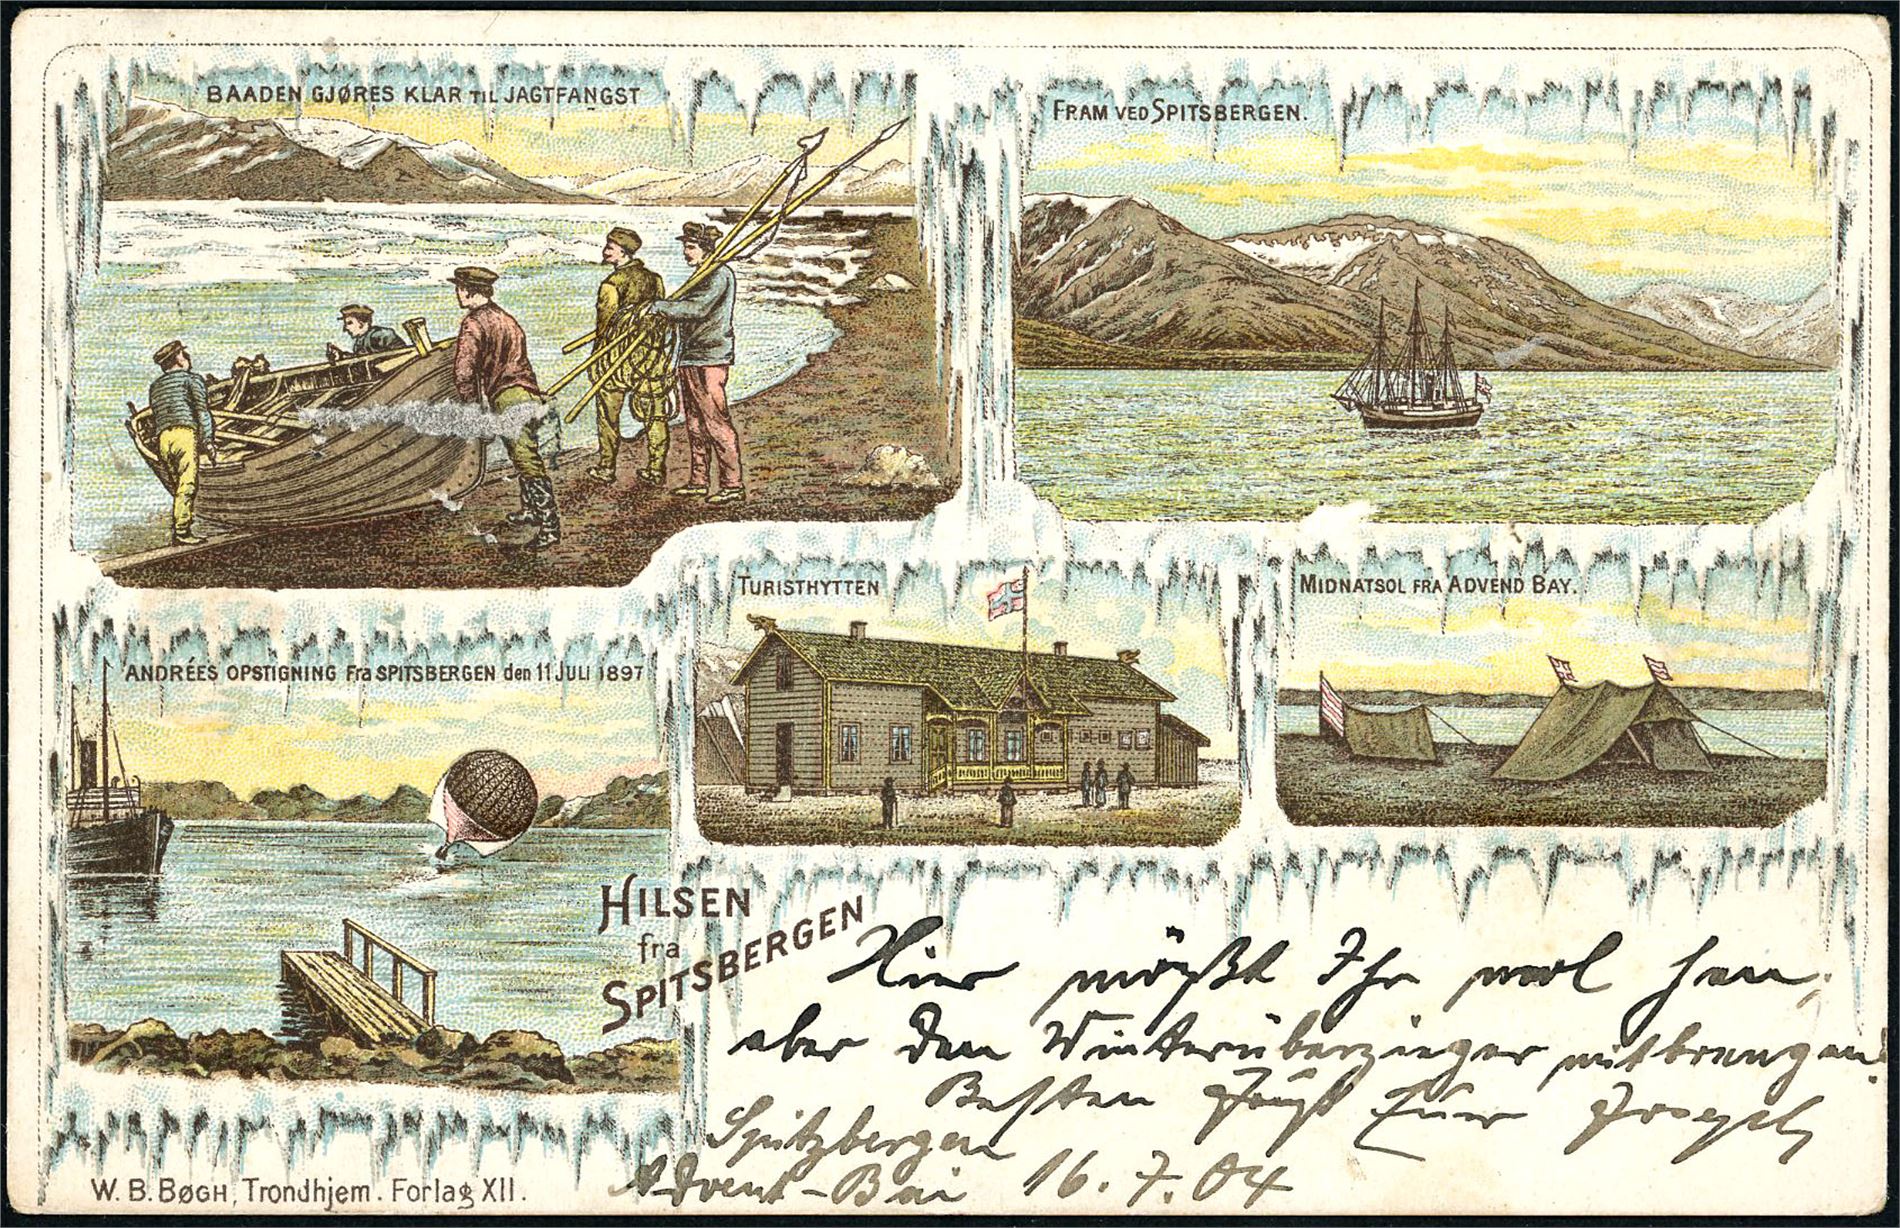 BAADEN GJØRES KLAR TIL JAGTFANGST
FRAM VED SPITSBERGEN.
TURISTHYTTEN
MIDNATSOL FRA ADVEND BAY.
ANDRÉES OPSTIGNING Fra SPITSBERGEN den 11 JULI 1897
HILSEN
fra
SPITSBERGEN
Hier müßt Ihr mal her,
aber den Winterüberzieger mitbrengen!
Besten Gruß Euer
Spitzbergen
Advent-Bai 16.7.04
W. B. BØGH, Trondhjem. Forlag XII.